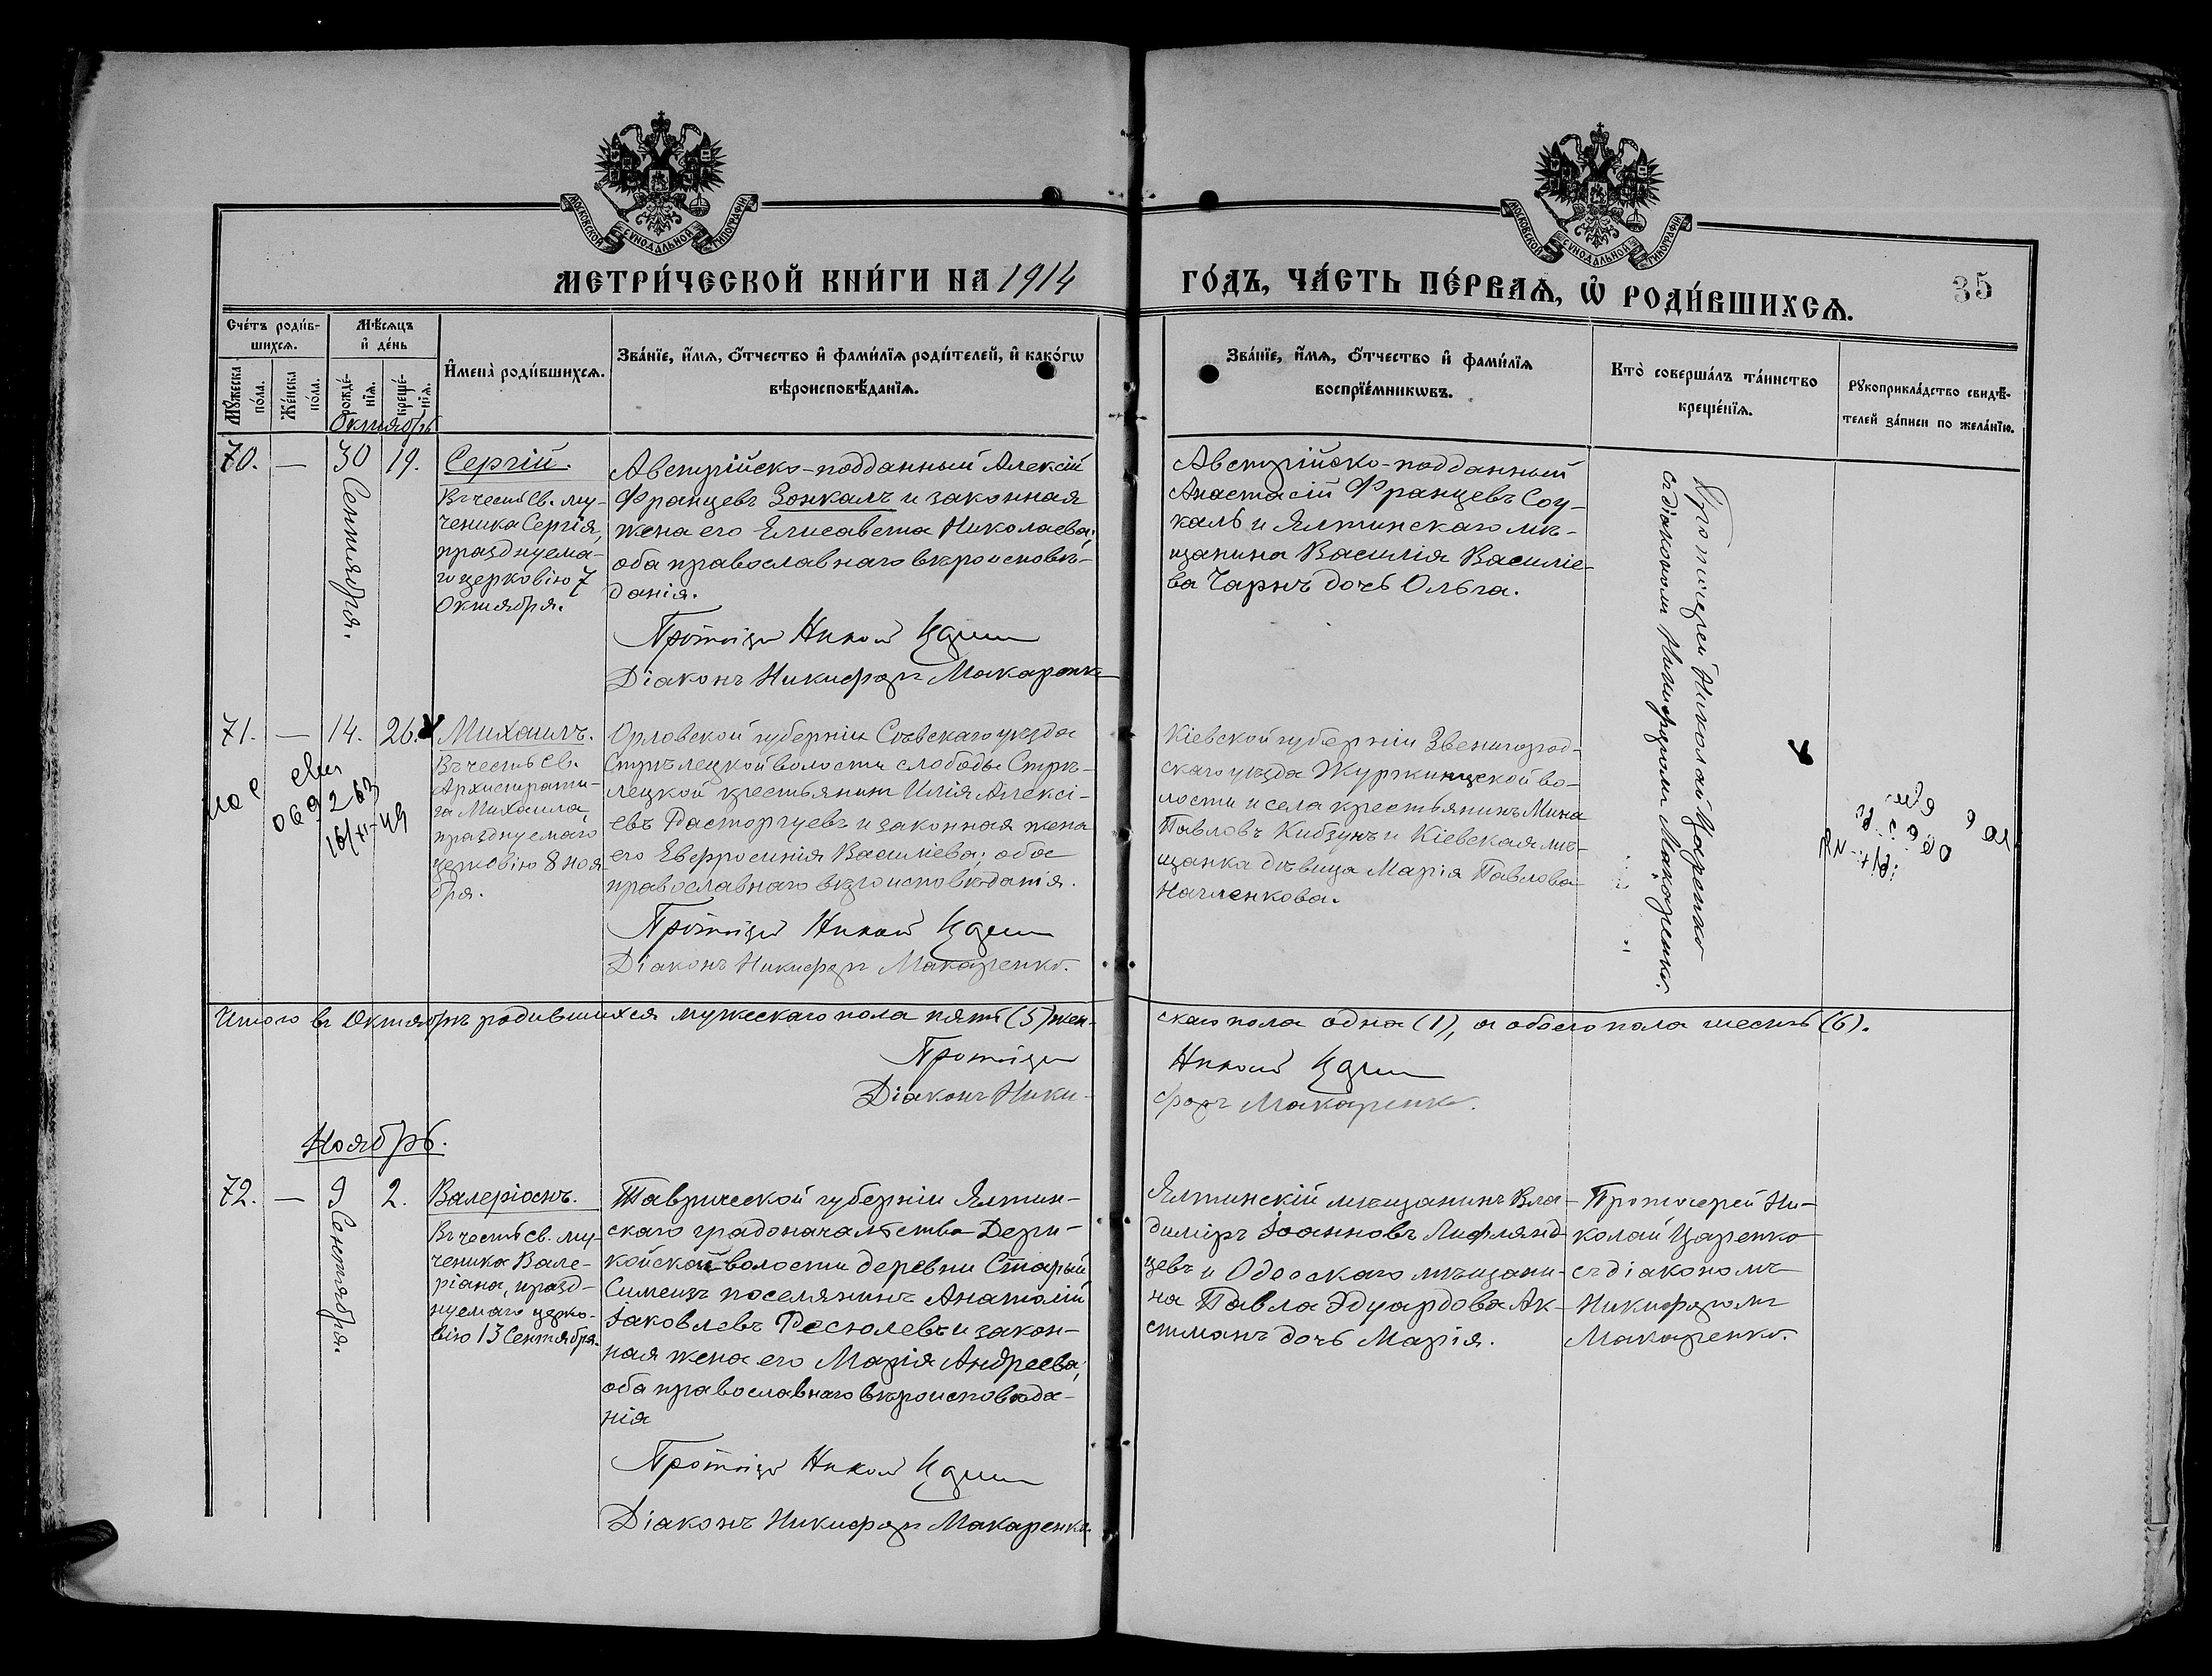 МОСКОВСКОЙ СѴНОДАЛЬНОЙ ТИПОГРАФІИ
МОСКОВСКОЙ СѴНОДАЛЬНОЙ ТИПОГРАФІИ
МЕТРИ́ЧЕСКОЙ КНИ́ГИ НА 1914
ГО́ДЪ, ЧА́СТЬ ПЕ́РВАѦ, Ѽ РОДИ́ВШИХСѦ.
35
Сче́тъ роди́в-
шихсѧ.
Мꙋ́жеска
по́ла.
Же́нска
по́ла.
Мѣ́сѧцъ
и҆ де́нь
рожде́-
нїѧ.
креще́-
нїѧ.
И҆мена̀ роди́вшихсѧ.
Зва́нїе, и҆́мѧ, ѻ҆́тчество и҆ фами́лїѧ роди́телей, и҆ како́гѡ
вѣроисповѣ́данїѧ.
Зва́нїе, и҆́мѧ, ѻ҆́тчество и҆ фами́лїѧ
воспрїе́мникѡвъ.
Кто̀ соверша́лъ та́инство
креще́нїѧ.
Рꙋкоприкла́дство свидѣ́-
телей за́писи по жела́нїю.
Октябрь
70.
—
30
Сентября.
19.
Сергій.
Въ честь св. му-
ченика Сергія,
празднуема-
го церковію 7
Октября.
Австрійско-подданный Алексій
Францевъ Зонкалъ и законная
жена его Елисавета Николаева;
оба православнаго вѣроисповѣ-
данія.
Діаконъ Никифоръ Макаренко
Австрійско-подданный
Анастасій Францевъ Соу-
каль и Ялтинскаго мѣ-
щанина Василія Василіе-
ва Чарнъ дочь Ольга.
Протоіерей Николай Царенко
съ діакономъ Никифоромъ Макаренко.
71.
—
14.
26.
Михаилъ.
Въ честь св.
Архистрати-
га Михаила,
празднуемаго
церковію 8 ноя-
бря.
Орловской губерніи Сѣвскаго уѣзда
Стрѣлецкой волости слободы Стрѣ-
лецкой крестьянинъ Илія Алексі-
евъ Расторгуевъ и законная жена
его Евфросинія Василіева; оба
православнаго вѣроисповѣданія.
Діаконъ Никифоръ Макаренко.
Кіевской губерніи Звенигород-
скаго уѣзда Журжинцской во-
лости и села крестьянинъ Мина
Павловъ Кибзунъ и Кіевская мѣ-
щанка дѣвица Марія Павлова
Начленкова.
069263
16/XI-49
Итого въ Октябрѣ родившихся мужескаго пола пять (5) жен-
скаго пола одна (1), а обоего пола шесть (6).
Діаконъ Ники-
форъ Макаренко.
Ноябрь.
72.
—
9
Сентября.
2.
Валеріанъ.
Въ честь св. му-
ченика Вале-
ріана, празд-
нуемаго церко-
вію 13 Сентября.
Таврической губерніи Ялтин-
скаго градоначальства Дери-
койской волости деревни Старый
Симеизъ поселянинъ Анатолій
Іаковлевъ Десюлевъ и закон-
ная жена его Марія Андреева;
оба православнаго вѣроисповѣда-
нія
Діаконъ Никифоръ Макаренко.
Ялтинскій мѣщанинъ Вла-
диміръ Іоанновъ Лифлянд-
цевъ и Одесскаго мѣщани-
на Павла Эдуардова Ак-
стманъ дочь Марія.
Протоіерей Ни-
колай Царенко
съ діакономъ
Никифоромъ
Макаренко.